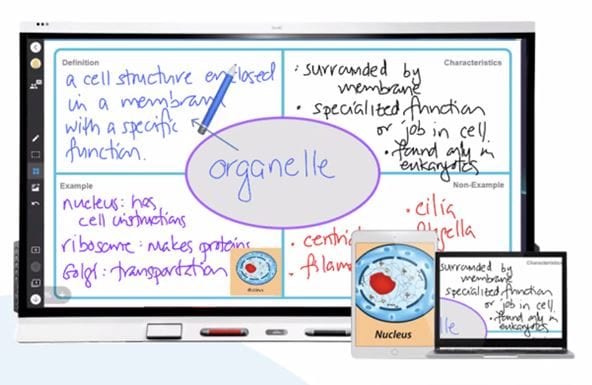 Definition
a cell structure enclosed
in a membrane
with a specific
function.
Characteristics
• surrounded by
membrane
• specialized function
or job in cell.
• found only in
eukaryotes
organelle
Example
nucleus: has
cell instructions
ribosome: makes proteins
Golgi: transportation
Non-Example
• cilia
Nucleus
Characteristics
surrounded by
membrane
specialized function
or job in cell.
• found only in
eukaryotes